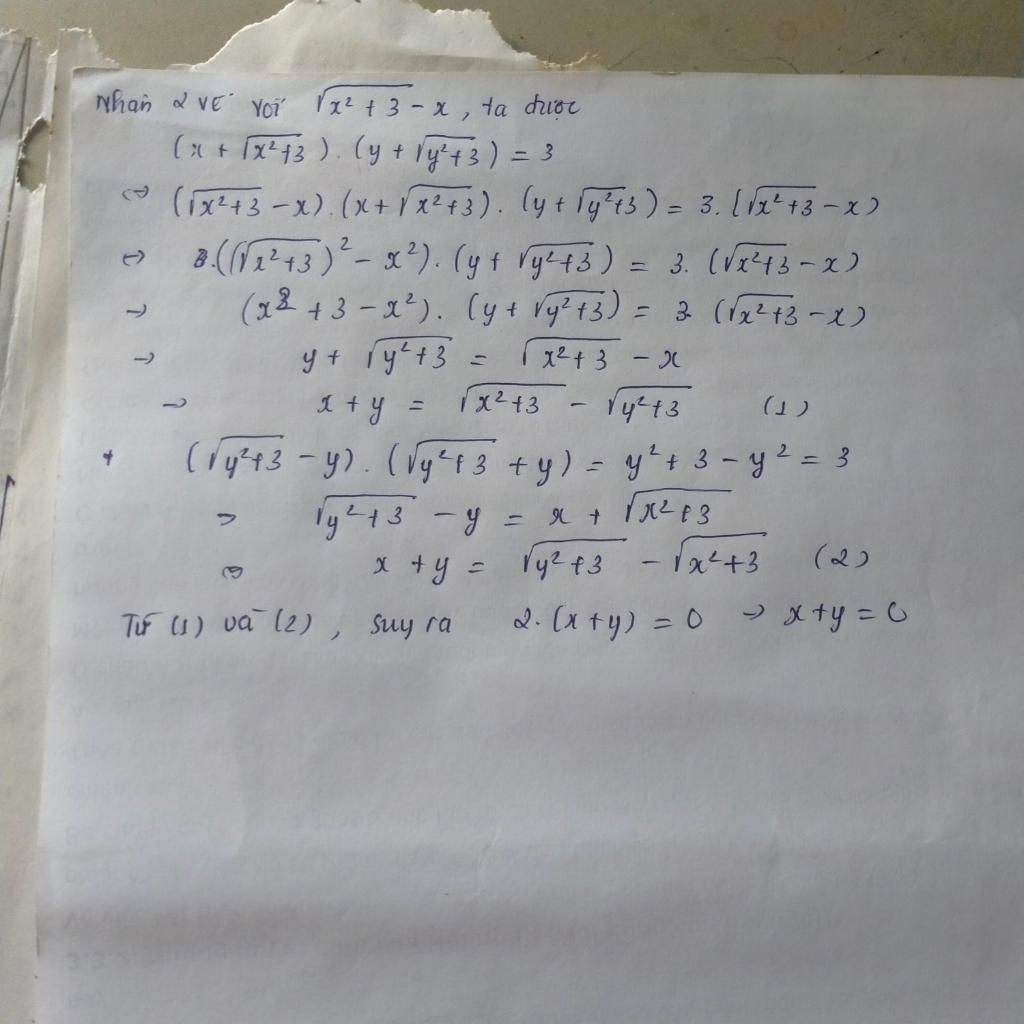 Nhân 2 vế với √(x² + 3) - x, ta được
(x + √(x²+3)). (y + √(y²+3)) = 3
<=> (√(x²+3) - x). (x + √(x²+3)). (y + √(y²+3)) = 3. (√(x²+3) - x)
<=> 3.((√(x²+3))² - x²). (y + √(y²+3)) = 3. (√(x²+3) - x)
→ (x² + 3 - x²). (y + √(y²+3)) = 3 (√(x²+3) - x)
→ y + √(y²+3) = √(x²+3) - x
→ x + y = √(x²+3) - √(y²+3) (1)
* (√(y²+3) - y). (√(y²+3) + y) = y² + 3 - y² = 3
=> √(y²+3) - y = x + √(x²+3)
<=> x + y = √(y²+3) - √(x²+3) (2)
Từ (1) và (2), suy ra 2.(x+y) = 0 → x+y = 0